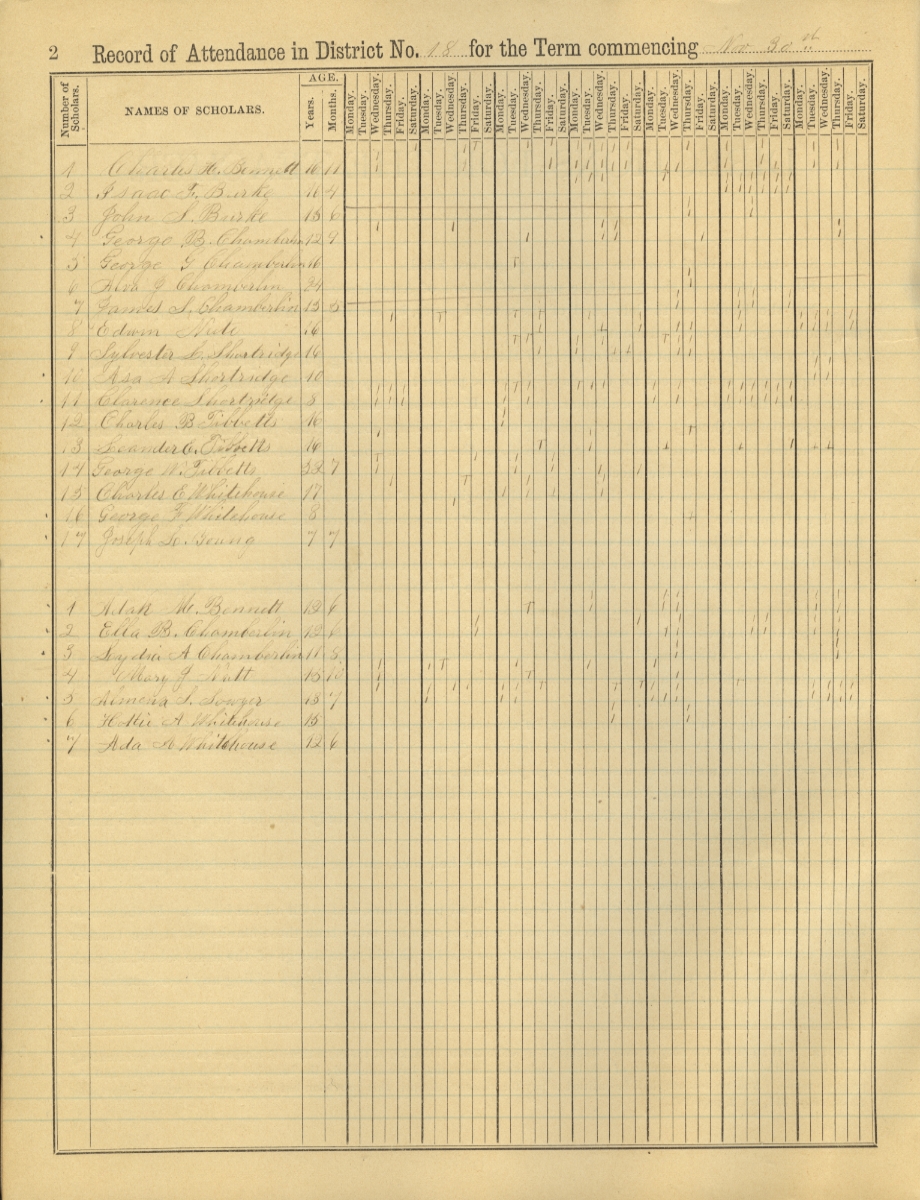 2 Record of Attendance in District No. 18 for the Term commencing Nov 30th
Number of Scholars. NAMES OF SCHOLARS. AGE. Years. Months. Monday. Tuesday. Wednesday. Thursday. Friday. Saturday. Monday. Tuesday. Wednesday. Thursday. Friday. Saturday. Monday. Tuesday. Wednesday. Thursday. Friday. Saturday. Monday. Tuesday. Wednesday. Thursday. Friday. Saturday. Monday. Tuesday. Wednesday. Thursday. Friday. Saturday. Monday. Tuesday. Wednesday. Thursday. Friday. Saturday. Monday. Tuesday. Wednesday. Thursday. Friday. Saturday.
1 Charles H. Bennett 16 11
2 Isaac F. Burke 16 4
3 John S. Burke 13 6
4 George B. Chamberlin 12 9
5 George G Chamberlin 16
6 Chamberlin 24
7 James S. Chamberlin 15 5
8 Edwin 16
9 Sylvester L. Shortridge 16
10 Asa A Shortridge 10
11 Clarence Shortridge 8
12 Charles B Tibbetts 16
13 Leander C. Tibbetts 14
14 George W. Tibbetts 7
15 Charles E Whitehouse 17
16 George F Whitehouse 8
17 Joseph L. Young 7 7
1 M. Bennett 12 6
2 Ella B. Chamberlin 12 6
3 Lydia A Chamberlin 11 5
4 Mary J Nutt 15 10
5 Almena S. 13 7
6 Hattie A Whitehouse 15
7 Ada A Whitehouse 12 6